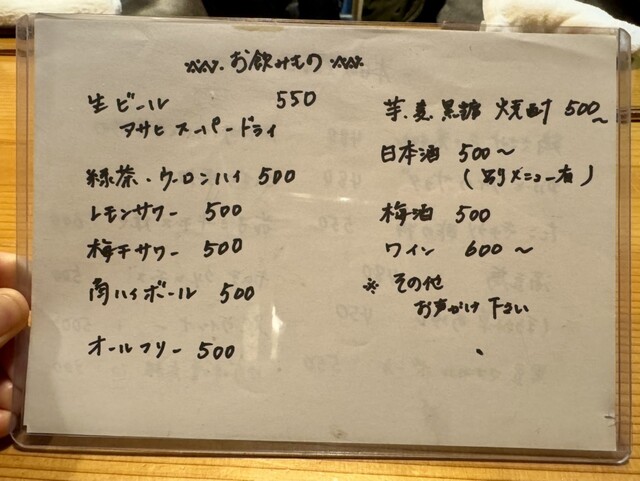 お飲みもの
生ビール 550
アサヒスーパードライ
緑茶・ウーロンハイ 500
レモンサワー 500
梅干サワー 500
角ハイボール 500
オールフリー 500
芋.麦.黒糖 焼酎 500~
日本酒 500~
(別メニュー有)
梅酒 500
ワイン 600~
※ その他
お声がけ下さい